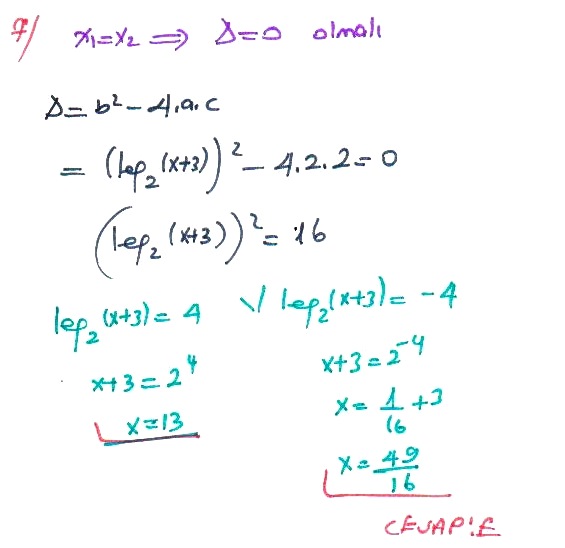 7/ x₁=x₂ ⟹ Δ=0 olmalı
Δ=b²-4.a.c
= (log₂(x+3))² - 4.2.2=0
(log₂(x+3))² = 16
log₂(x+3) = 4 V log₂(x+3) = -4
x+3=2⁴
x=13
x+3=2⁻⁴
x= 1/16 +3
x= 49/16
CEVAP:E